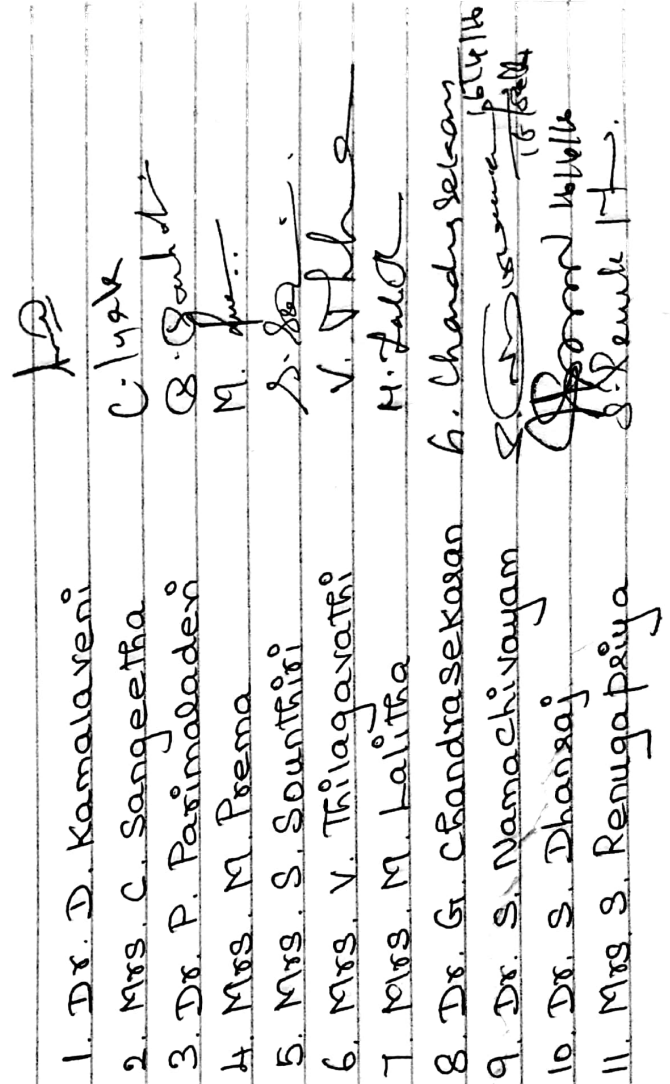 1. Dr. D. Kamalaveni
2. Mrs. C. Sangeetha
3. Dr. P. Parimaladevi
4. Mrs. M. Prema M.
5. Mrs. S. Sounthiri S.
6. Mrs. V. Thilagavathi V.
7. Mrs. M. Lalitha M.
8. Dr. G. Chandrasekaran G. Chandrasekaran 16/4/16
9. Dr. S. Namachivayam
10. Dr. S. Dhanraj
11. Mrs. S. Renugapriya